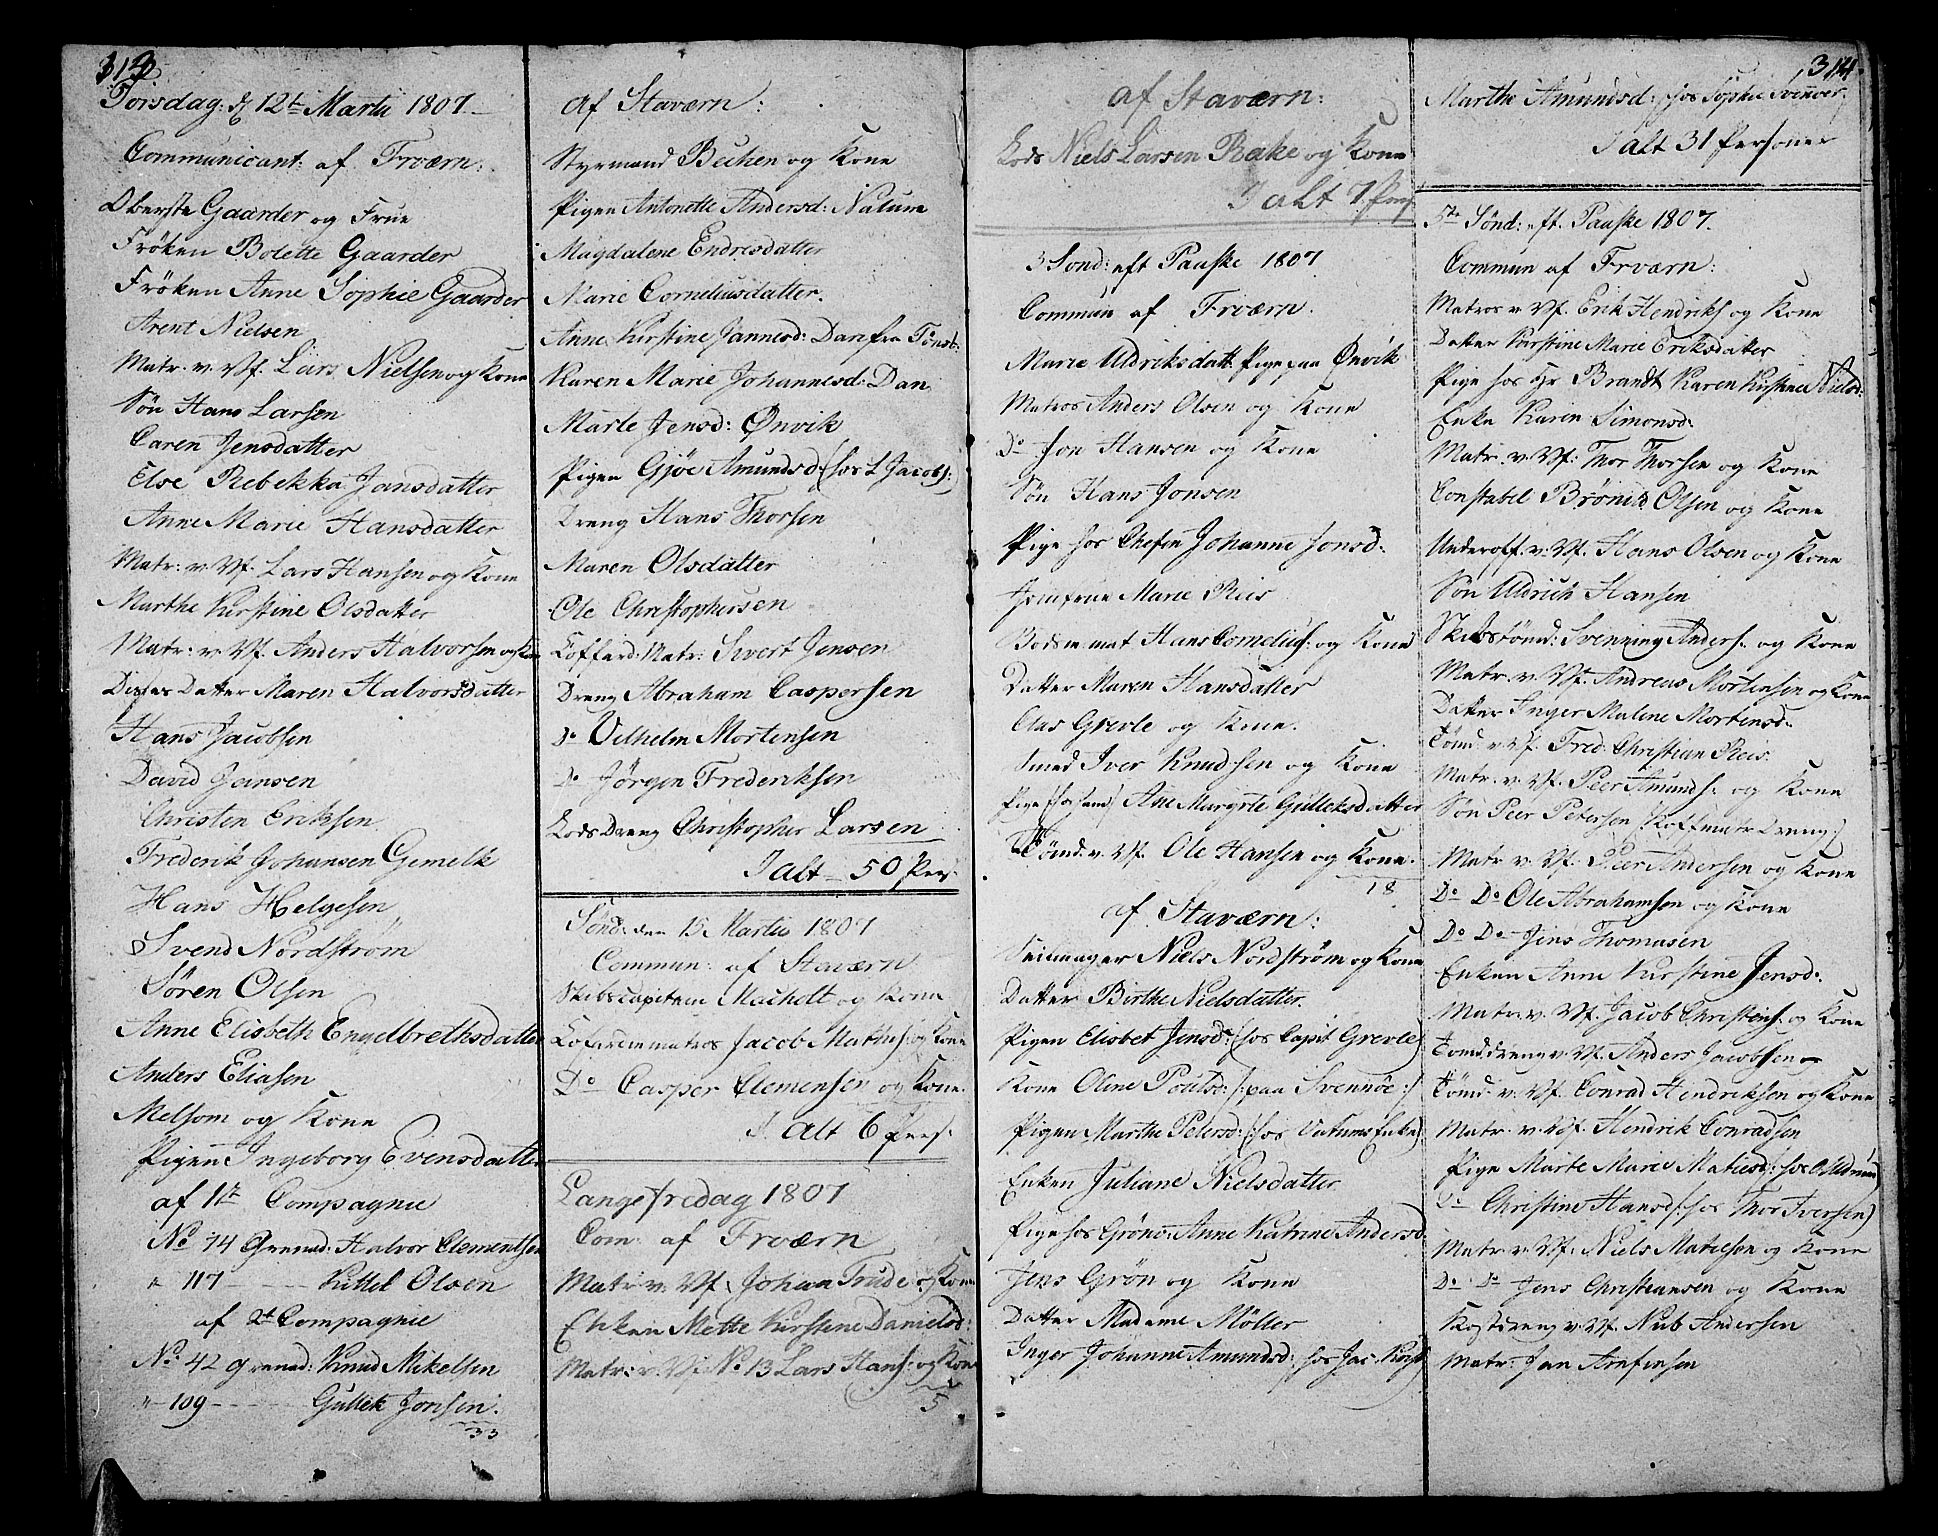 313
Torsdag: d 12te Martii 1807
Communicant: af Frværn:
Oberste Gaarder og Frue
Frøken Bolette Gaarder
Frøken Anne Sophie Gaarder
Arent Nielsen
Matr: v: Vf. Lars Nielsen og Kone
Søn Hans Larsen
Caren Jensdatter
Else Rebekka Jansdatter
Anne Marie Hansdatter
Matr: v: Vf. Lars Hansen og Kone
Marthe Kirstine Olsdatter
Matr: v: Vf. Anders Halvorsen og Kone
Disses Datter Maren Halvorsdatter
Hans Jacobsen
David Jensen
Christen Eriksen
Frederik Johansen Gemelk
Hans Helgesen
Svend Nordstrøm
Søren Olsen
Anne Elisbeth Engelbrethsdatter
Anders Eliasen
Melsom og Kone
Pigen Ingeborg Evensdatter
af 1te Compagnie
No 74 Grenad: Halvor Clementsen
" 117 - - - Kittel Olsen
af 2t Compagnie
No 42 Grenad: Knud Mikelsen
" 109 - - - Gullek Jonsen.
33
af Staværn:
Styrmand Bechen og Kone
Pigen Antonette Andersd: Natum
Magdalene Endresdatter
Marie Corneliusdatter.
Anne Kirstine Jannesd: Dan fra Tønsb:
Karen Marie Johannesd: Dan
Marte Jensd: Ønvik
Pigen Gjøe Amundsd (hos L Jacobs:)
Dreng Hans Thorsen
Maren Olsdatter
Ole Christophersen
Coffard: Matr: Sivert Jensen
Dreng Abraham Caspersen
Do Vilhelm Mortensen
Do Jørgen Frederiksen
Lods Dreng Christopher Larsen
I alt - 50 Pers.
Sønd: den 15 Martii 1807
Commun: af Staværn
Skibscapitain Macholt og Kone
Cofardiematros Jacob Mathis: og Kone
Do Casper Clemensen og Kone.
I alt 6 Pers:
Langefredag 1807
Com: af Frværn
Matr: v: Vf. Johan Trude og Kone
Enken Mette Kirstine Danielsd:
Matr: v: Vf. No 13 Lars Hans: og Kone
5
af Staværn:
Lods Niels Larsen Rake og Kone
I alt 7 Pers
3 Sønd: eft Paaske 1807
Commun af Frværn.
Marie Uldriksdatt Pige paa Ønvik
Matros Anders Olsen og Kone
Do Jon Hansen og Kone
Søn Hans Jonsen
Pige hos Chefen Johanne Jonsd:
Jomfrue Marie Reis
Bodsmemat Hans Cornelius: og Kone
Datter Maren Hansdatter
Clas Grevle og Kone.
Smed Iver Knudsen og Kone
Pige (hos ham) Ane Margrte Gulleksdatter
Tømd. v. Vf. Ole Hansen og Kone.
18
af Staværn:
Seilmager Niels Nordstrøm og Kone
Datter Birthe Nielsdatter.
Pigen Elisbet Jensd: (hos Capit Grevle)
Kone Oline Poulsd: /: paa Svennøe :/
Pigen Marthe Petersd: (hos Vatums Enke)
Enken Juliane Nielsdatter
Pige hos Grøns: Anne Katrine Andersd:
Jens Grøn og Kone
Datter Madame Møller
Inger Johanne Amundsd: hos Jac. Koch
314.
Marthe Amundsd: hos Sophie Svenøer
I alt 31 Personer
5te Sønd: eft. Paaske 1807.
Commun af Frværn:
Matros v. Vf. Erik Hendriks og Kone
Datter Kirstine Marie Eriksdatter
Pige hos Hr Brandt Karen Kirstine Nielsd:
Enke Karin Simonsd:
Matr. v. Vf: Thor Thorsen og Kone
Constabel Brønild Olsen og Kone
Underoff. v. Vf. Hans Olsen og Kone
Søn Uldrich Hansen
Skibstømd: Svenning Anders: og Kone
Matr. v. Vf. Andreas Mortensen og Kone
Datter Inger Malene Mortensd:
Tømd. v. Vf. Fred: Christian Reis
Matr. v. Vf. Peer Amunds: og Kone
Søn Peer Petersen /: Koffmatr Dreng :/
Matr v. Vf. Peer Andersen og Kone
Do Do Ole Abrahamsen og Kone
Do Do Jens Thomasen
Enken Anne Kirstine Jensd:
Matr: v. Vf. Jacob Christens: og Kone
Tømd. dreng v. Vf. Anders Jacobsen
Tømd. v. Vf. Conrad Hendriksen og Kone
Matr. v. Vf. Hendrik Conradsen
Pige Marte Marie Matiesd: hos
Do Christine Hansd (: hos Thor Iversen)
Matr. v. Vf: Niels Matiesen og Kone
Do Do Jens Christiansen og Kone
Kogsdreng v. Vf. Nub Andersen
Matr: Jan Arnfinsen